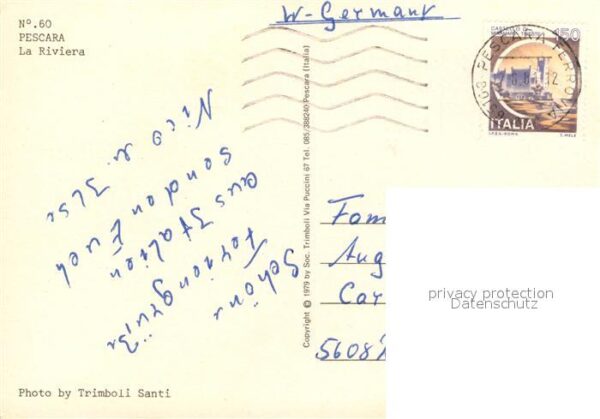 Nº.60
PESCARA
La Riviera
W-Germany
CASTELLO DI
150
ITALIA
I.P.Z.S.-ROMA
E. MELE
PESCARA FERROVIA
12
Schöne
aus Italien
senden Euch
Nico
Copyright © 1979 by Soc. Trimboli Via Puccini 67 Tel. 085/388240 Pescara (Italia)
Fam
Aug
Car
5608
privacy protection
Datenschutz
Photo by Trimboli Santi